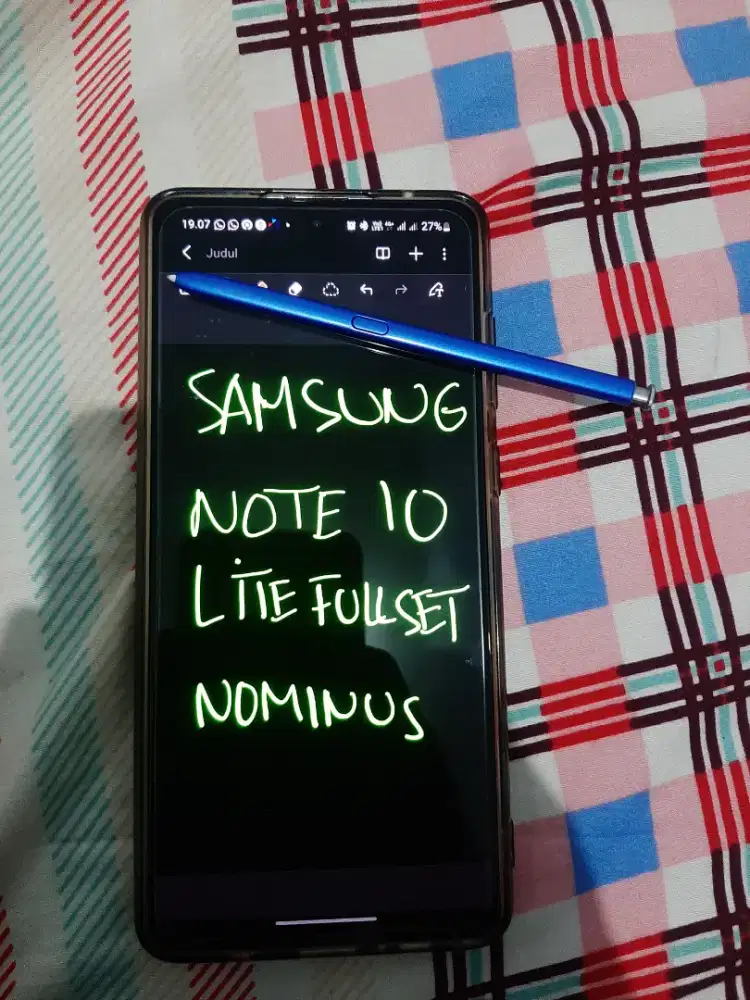 19.07 27%
Judul
SAMSUNG
NOTE 10
LITE FULLSET
NOMINUS